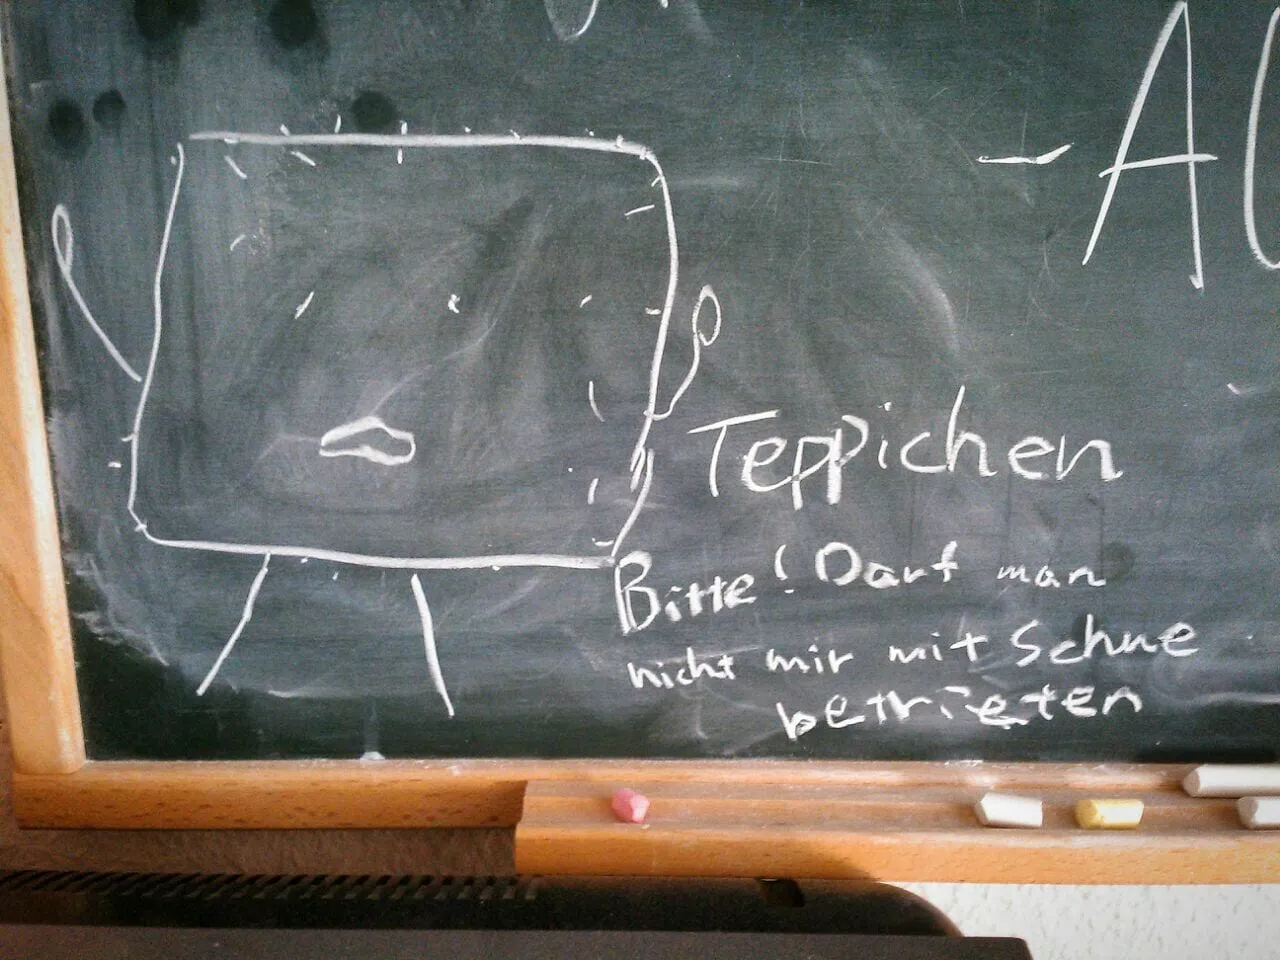 - AC
Teppichen
Bitte! Darf man
nicht mir mit Schue
betrieten